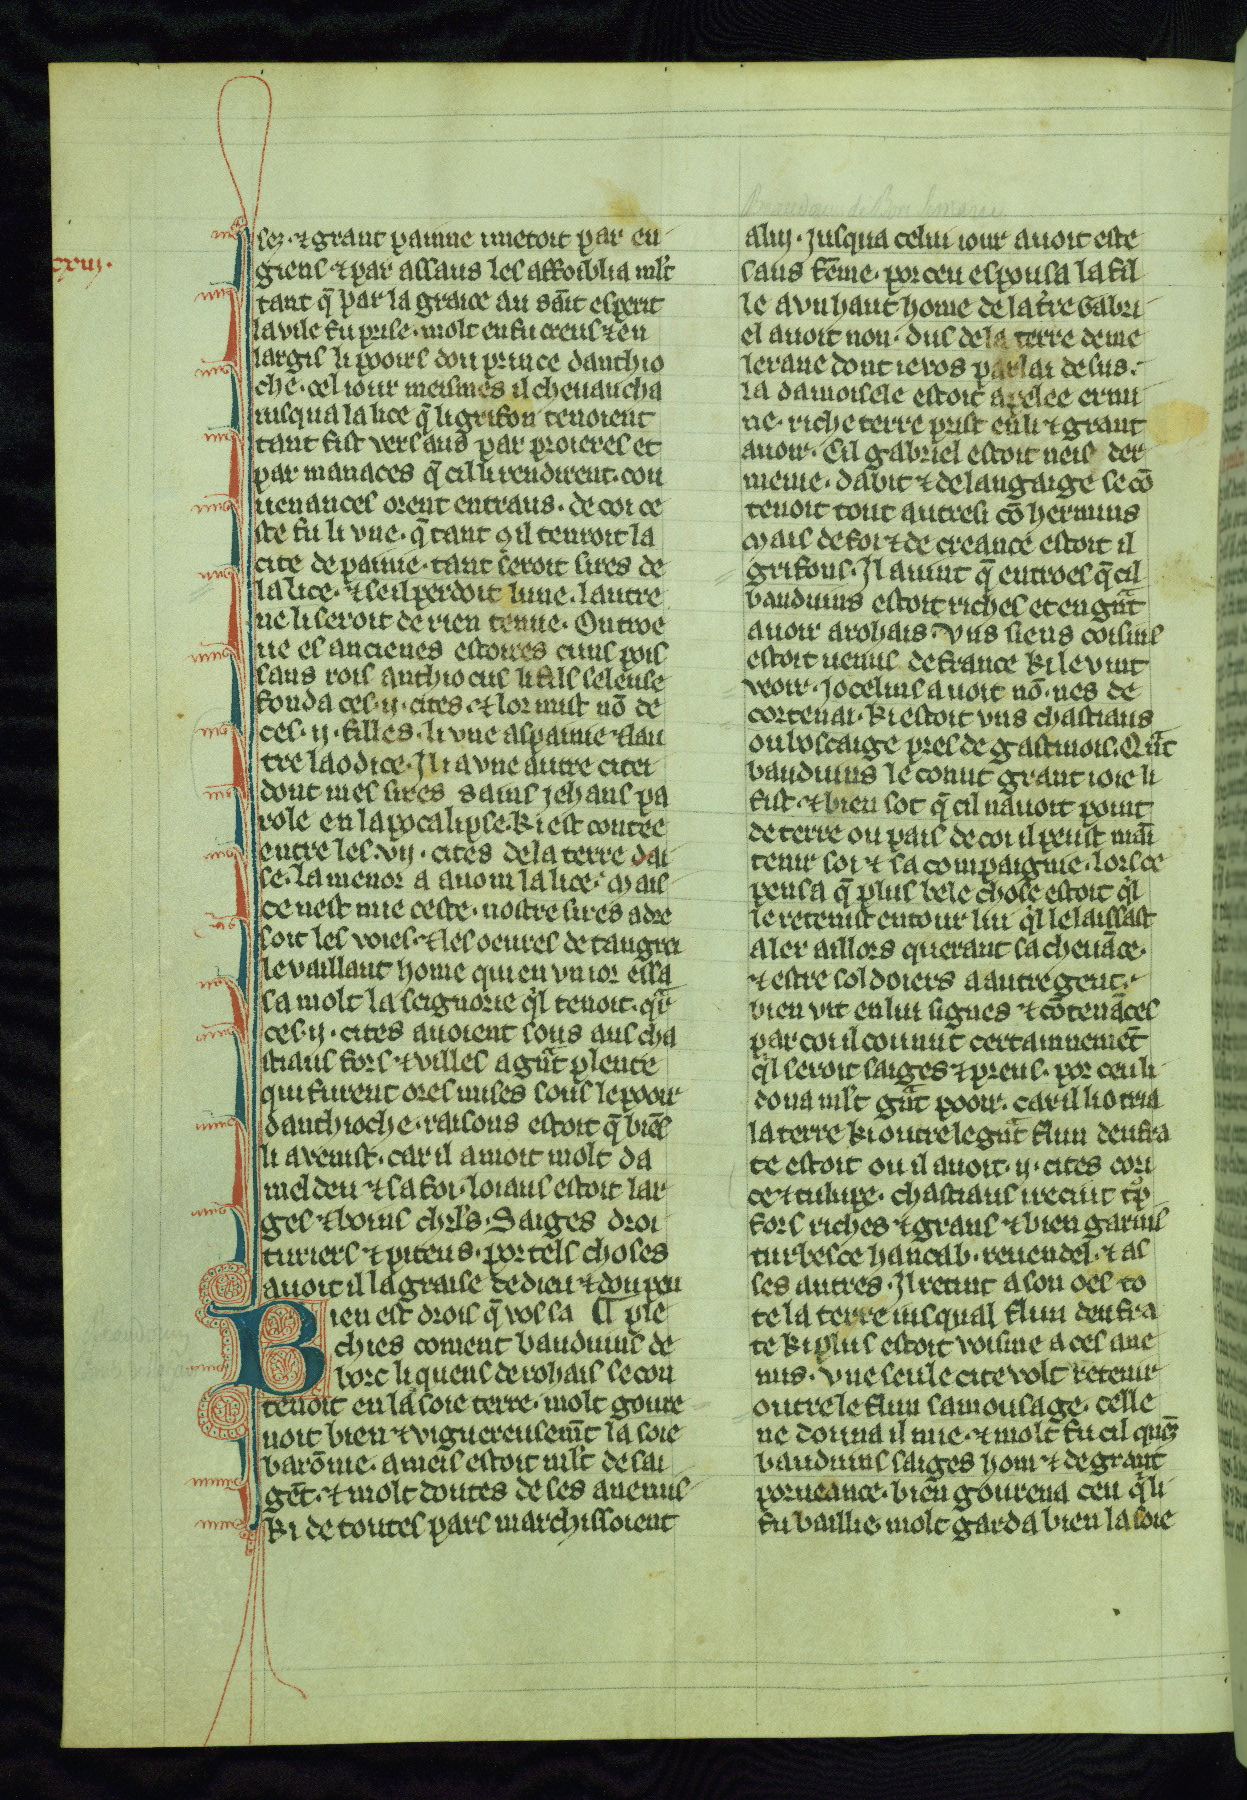 cxxiij.
sez. et grant painne i metoit par en
giens et par assaus les affoiblia ml't
tant q̄ par la graice au saīt esperit
la vile fu prise. molt en fu creus et en
largis li pooirs dou prince danthio
che. cel iour meismes il cheuaucha
iusqua la lice q̄ li grifon tenoient
tant fist vers aus par proieres et
par manaces q̄ cil li rendirent. con
uenances orent entraus. de coi ce
ste fu li vne. q̄ tant 9 il tenroit la
cite de pamie. tant seroit sires de
la lice. et seil perdoit lune. lautre
ne li seroit de rien tenue. On troe
ue es ancienes estoires cuns pois
sans rois anthiocus li fils seleuse
fonda ces .ij. cites. et lor mist nō de
ces .ij. filles. li vne a pamie et lau
tre laodice. Il i a vne autre citei
dont mes sires sains jehans pa
role en lapocalipse. ki est contee
entre les .vij. cites de la terre dai
se. la menor a a nom la lice. Mais
ce nest mie ceste. nostre sires adre
soit les voies et les oeures de tangrei
le vaillant home qui en vn ior essa
sa molt la seignorie q'l tenoit. q̄r
ces .ij. cites auoient sous aus cha
stiaus fors et villes a gnt plente
qui furent ores mises sous le pooir
danthioche. raisons estoit q̄ biēs
li avenist. car il amoit molt da
mel deu et sa foi. loiaus estoit lar
ges et boins chrl's. Saiges droi
turiers et piteus. por tels choses
auoit il la graise de dieu et dou peu
Bien est drois q̄ vos sa ¶ ple
chies coment bauduins de
borc li quens de rohais se con
tenoit en la soie terre. molt goure
noit bien et viguereusemt la soie
barōnie. ameis estoit ml't de sai
gēt. et molt doutes de ses anemis
Ki de toutes pars marchissoient
a luj. jusqua celui iour auoit este
sans fēme. por ceu espousa la fil
le a vn haut home de la t're Gabri
el auoit non. dus de la terre de me
lerane dont ie vos parlai desus.
la damoisele estoit apelee ermi
ne. riche terre prist en li et grant
auoir. Cil gabriel estoit neis der
menie. dabit et de langaige se cō
tenoit tout autresi cō hermins
Mais de foi et de creance estoit il
grifons. Il auint q̄ entroes q̄ cil
bauduins estoit riches et en gnt
auoir a rohais. vns siens coisins
estoit uenus de france ki le vint
veoir. Jocelins auoit nō. nes de
cortenai. ki estoit vns chastiaus
ou boscaige pres de gastinois. Qn̄t
bauduins le conut grant ioie li
fist. et bien sot q̄ cil nauoit point
de terre ou pais de coi il peust mai
tenir soi et sa compaignie. lors ce
pensa q̄ plus bele chose estoit q'l
le retenist entour lui q'l le laissast
aler aillors querant sa cheuāce.
et estre soldoiers a autre gent.
bien vit en lui signes et cōtenāces
par coi il counut certainnemēt
q'l seroit saiges et preus. por ceu li
dona ml't gnt pooir. car il li otria
la terre ki outre le gnt flun deufra
te estoit ou il auoit .ij. cites cori
ce et tulupe. chastiaus i recut tp̄
fors riches et grans et bien garnis
turbesce hancab. reuendel. et as
ses autres. Il retint a son oes to
te la terre iusqual flun deufra
te ki plus estoit voisine a ces ane
mis. vne seule cite volt retenir
outre le flun samousage. celle
ne donna il mie. et molt fu cil quēs
bauduins saiges hom et de grant
porueance. bien gourena ceu q'l li
fu baillie. molt garda bien la soie